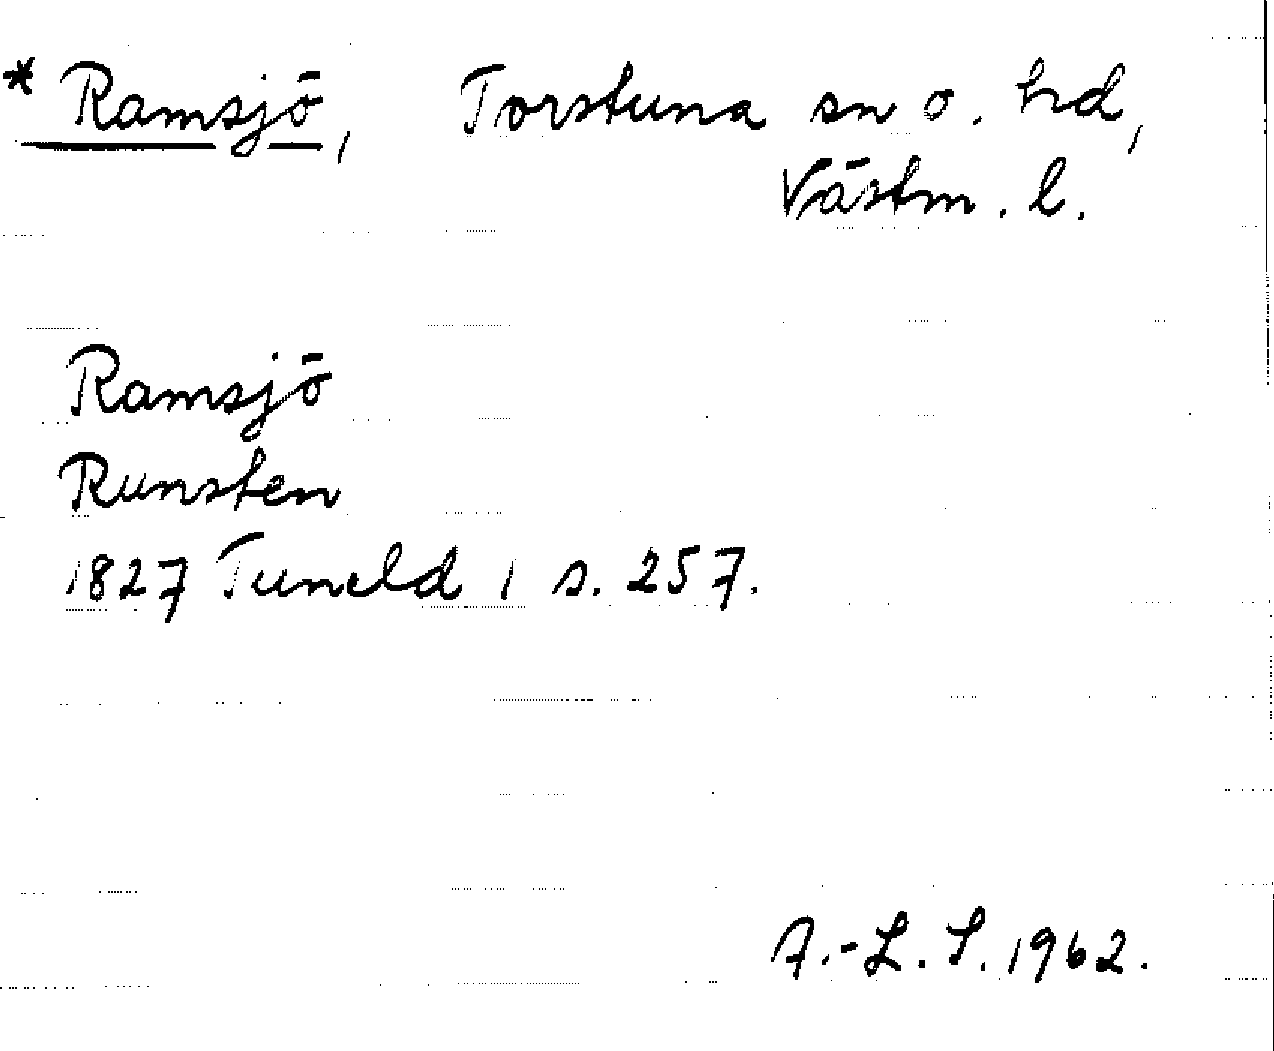 * Ramsjö, Torstuna sn o. hd,
Västm. l.
Ramsjö
Runsten
1827 Tuneld 1 s. 257.
A.-L. S. 1962.